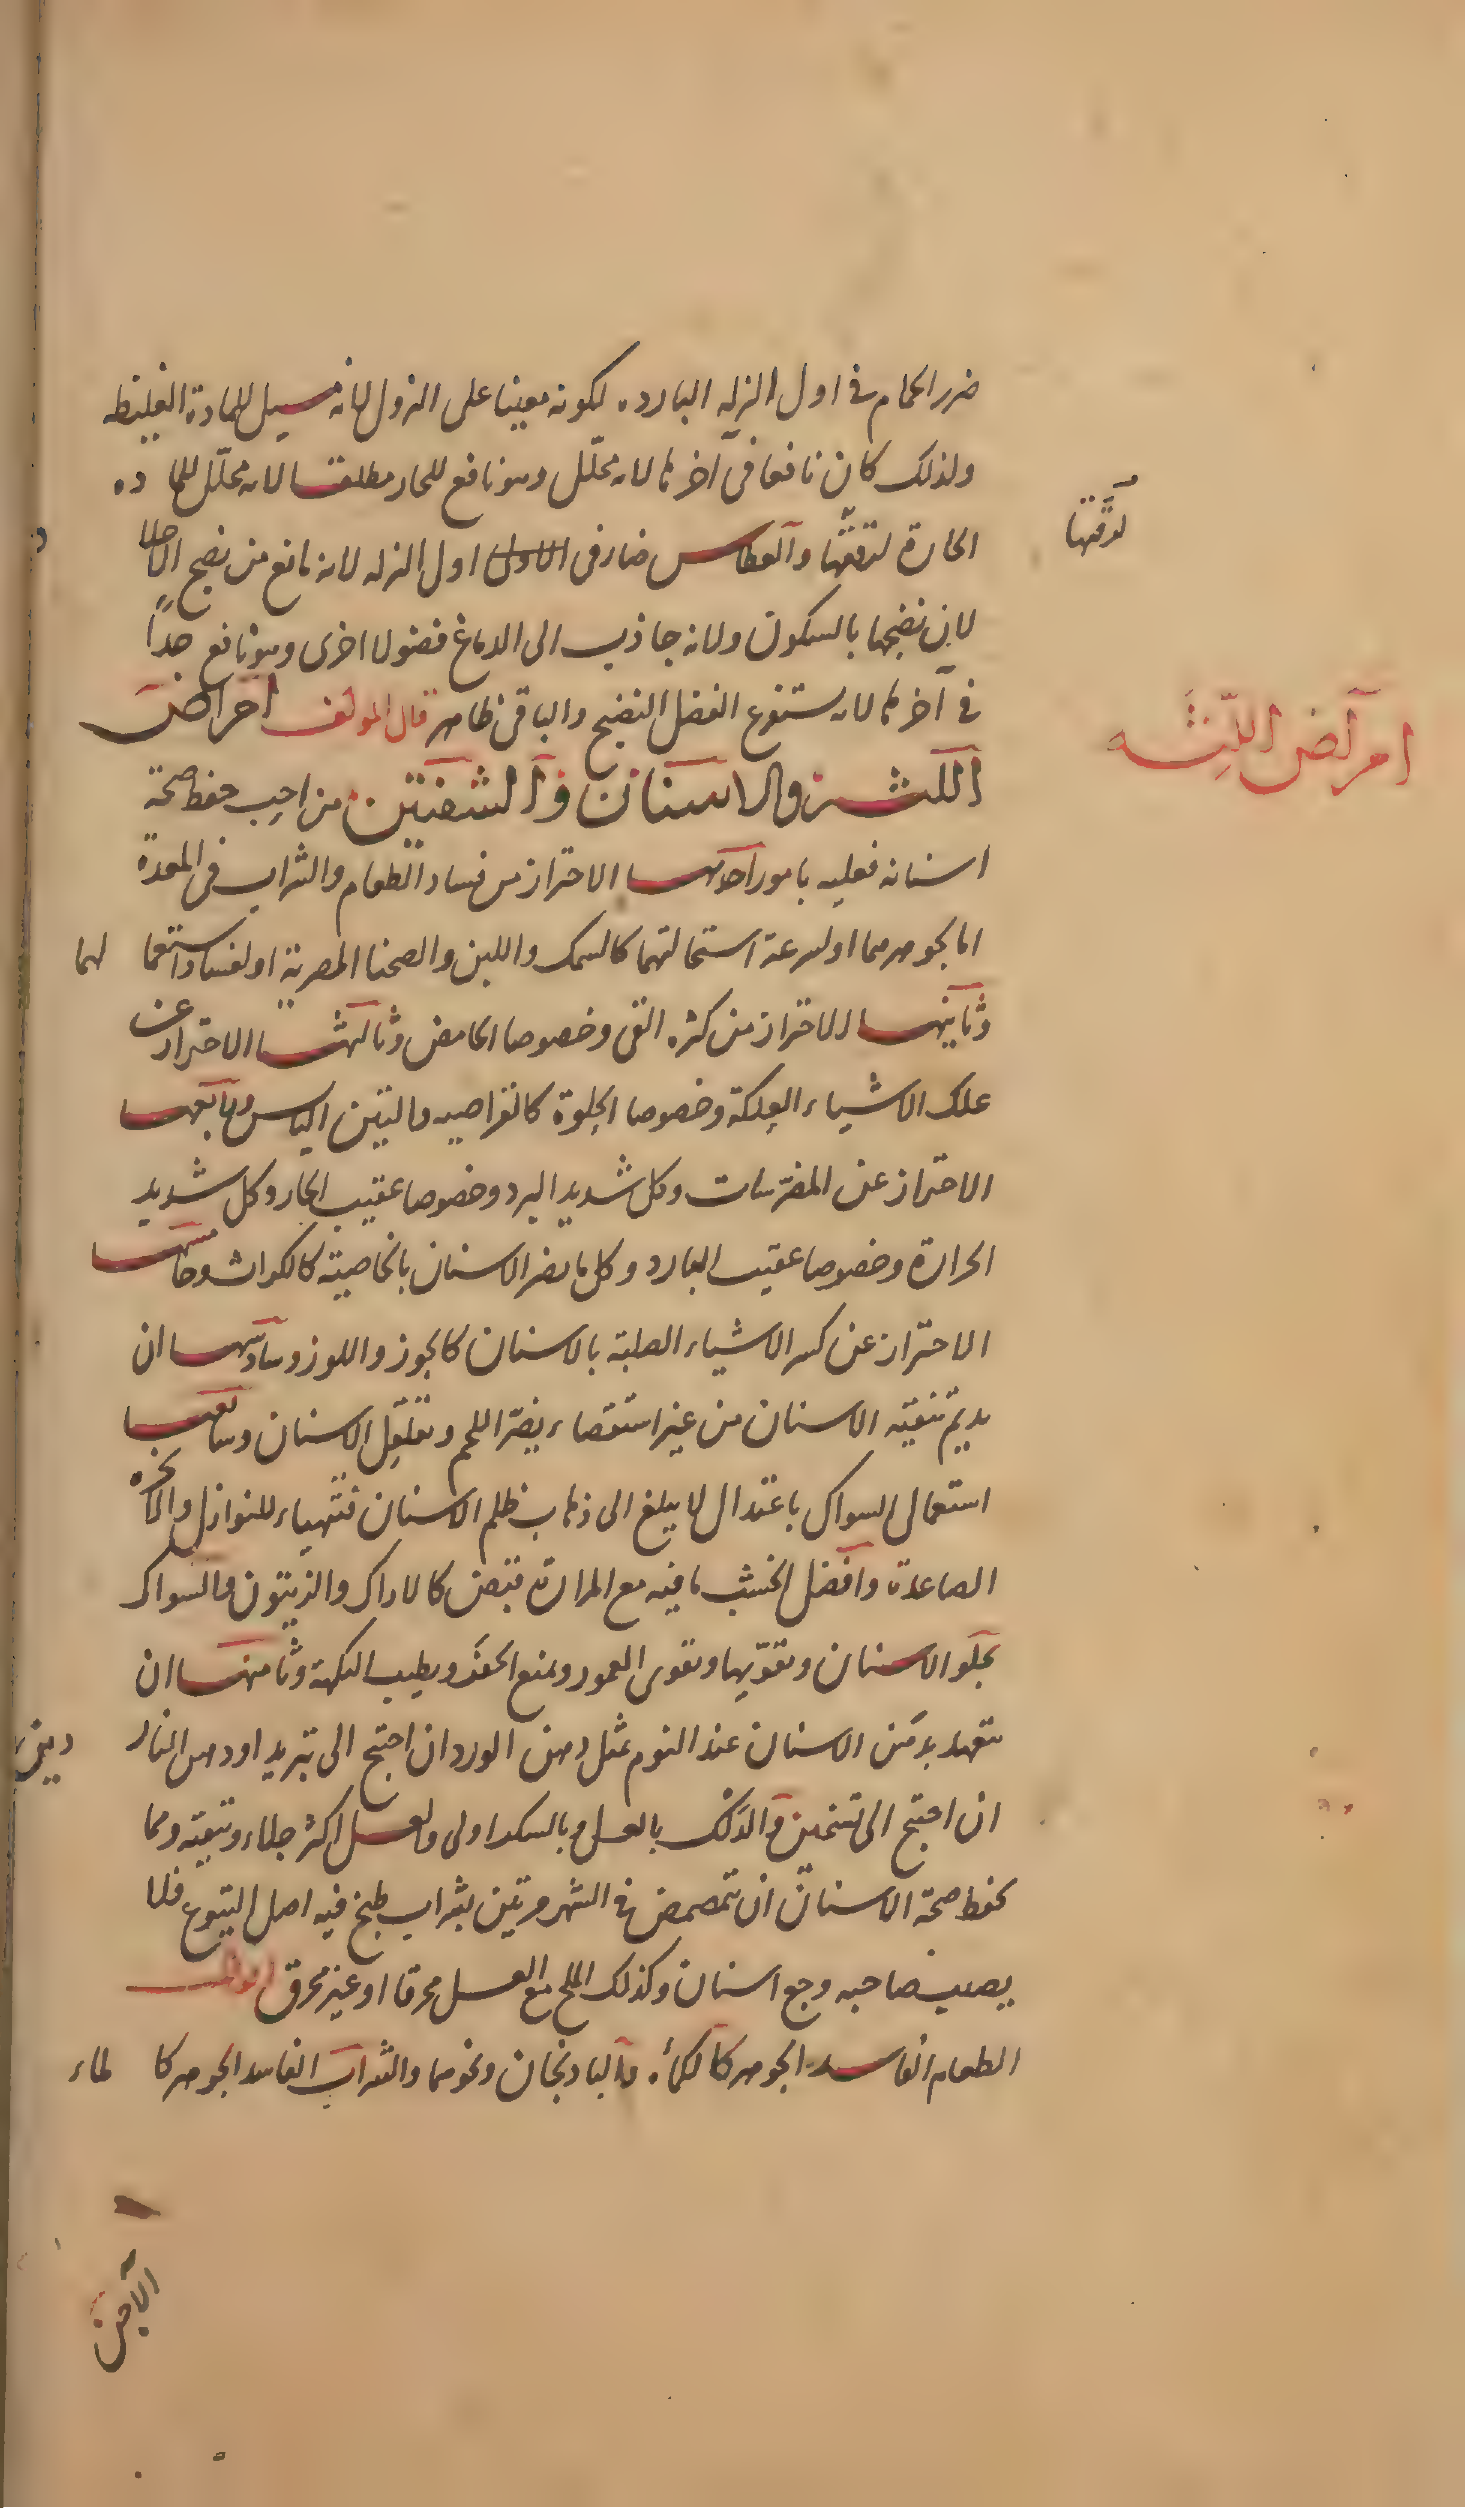 ضرر الحمام فى اول النزله البارده لكونه معينا على النزول لانه مسيل للمادة الغليظه
ولذلك كان نافعا فى آخرها لانه محلّل وهو نافع للحار مطلقا لانه محلّل للماده
الحارة لترققها والعطاس ضار فى اول النزله لانه مانع من نضج الاخلا
لرقّتها
لان نضجها بالسكون ولانه جاذب الى الدماغ فضولا اخرى وهو نافع جداً
فى آخرها لانه يستفرغ الفضل النضيج والباقى ظاهر قال المولف امراض
امراض اللّثه
اللثه والاسنان والشفتين من احب حفظ صحة
اسنانه فعليه بامور احدها الاحتراز من فساد الطعام والشراب فى المعدة
اما لجوهرهما او لسرعة استحالتهما كالسمك واللبن والصحنا المصرية او لفساد استعما لهما
وثانيها الاحتراز من كثره القى وخصوصا الحامض وثالثها الاحتراز عن
علك الاشياء العلكة وخصوصا الحلوة كالقراصيه والتين اليابس ورابعها
الاحتراز عن المضرسات وكل شديد البرد وخصوصا عقيب الحار وكل شديد
الحرارة وخصوصا عقيب البارد وكل ما يضر الاسنان بالخاصية كالكراث وخامسها
الاحتراز عن كسر الاشياء الصلبة بالاسنان كالجوز واللوز وسادسها ان
يديم تنقيه الاسنان من غير استقصاء يضرّ اللحم ويقلقل الاسنان وسابعها
استعمال السواك باعتدال لا يبلغ الى ذهاب ظلم الاسنان فتتهياء للنوازل والابخره
الصاعدة وافضل الخشب ما فيه مع المرارة قبض كالاراك والزيتون والسواك
يجلو الاسنان ويقوّيها ويقوى العمور ويمنع الحفر ويطيب النكهة وثامنها ان
يتعهد بدهن الاسنان عند النوم بمثل دهن الورد ان احتج الى تبريد او دهن النار دين
ان احتج الى تسخين والدلك بالعسل وبالسكر اولى والعسل اكثر جلاء وتنقيه ومما
يحفظ صحة الاسنان ان يتمضمض فى الشهر مرتين بشراب طبخ فيه اصل اليتوع فلا
يصيب صاحبه وجع اسنان وكذلك الملح مع العسل محرقا او غير محرق
الطعام الفاسد الجوهر كالكمأه والبادنجان ونحوهما والشراب الفاسد الجوهر كا لماء
الآجن